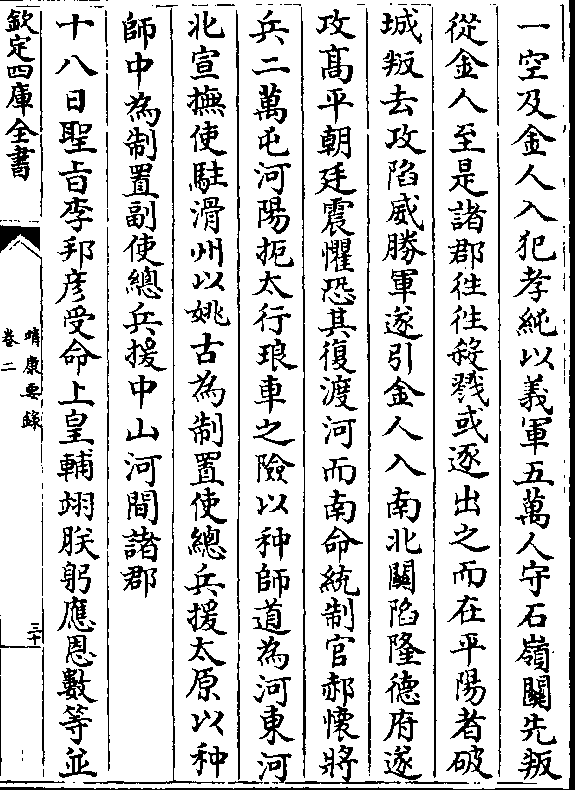 一空及金人入犯孝純以義軍五萬人守石嶺關先叛
從金人至是諸郡徃徃殺戮或逐出之而在平陽者破
城叛去攻陷威勝軍遂引金人入南北關陷隆德府遂
攻髙平朝廷震懼恐其復渡河而南命統制官郝懐將
兵二萬屯河陽扼太行琅車之險以种師道為河東河
北宣撫使駐滑州以姚古為制置使總兵援太原以种
師中為制置副使總兵援中山河間諸郡
十八日聖㫖李邦彦受命上皇輔翊朕躬應恩數等並
欽定四庫全書
靖康要錄
卷二
三十